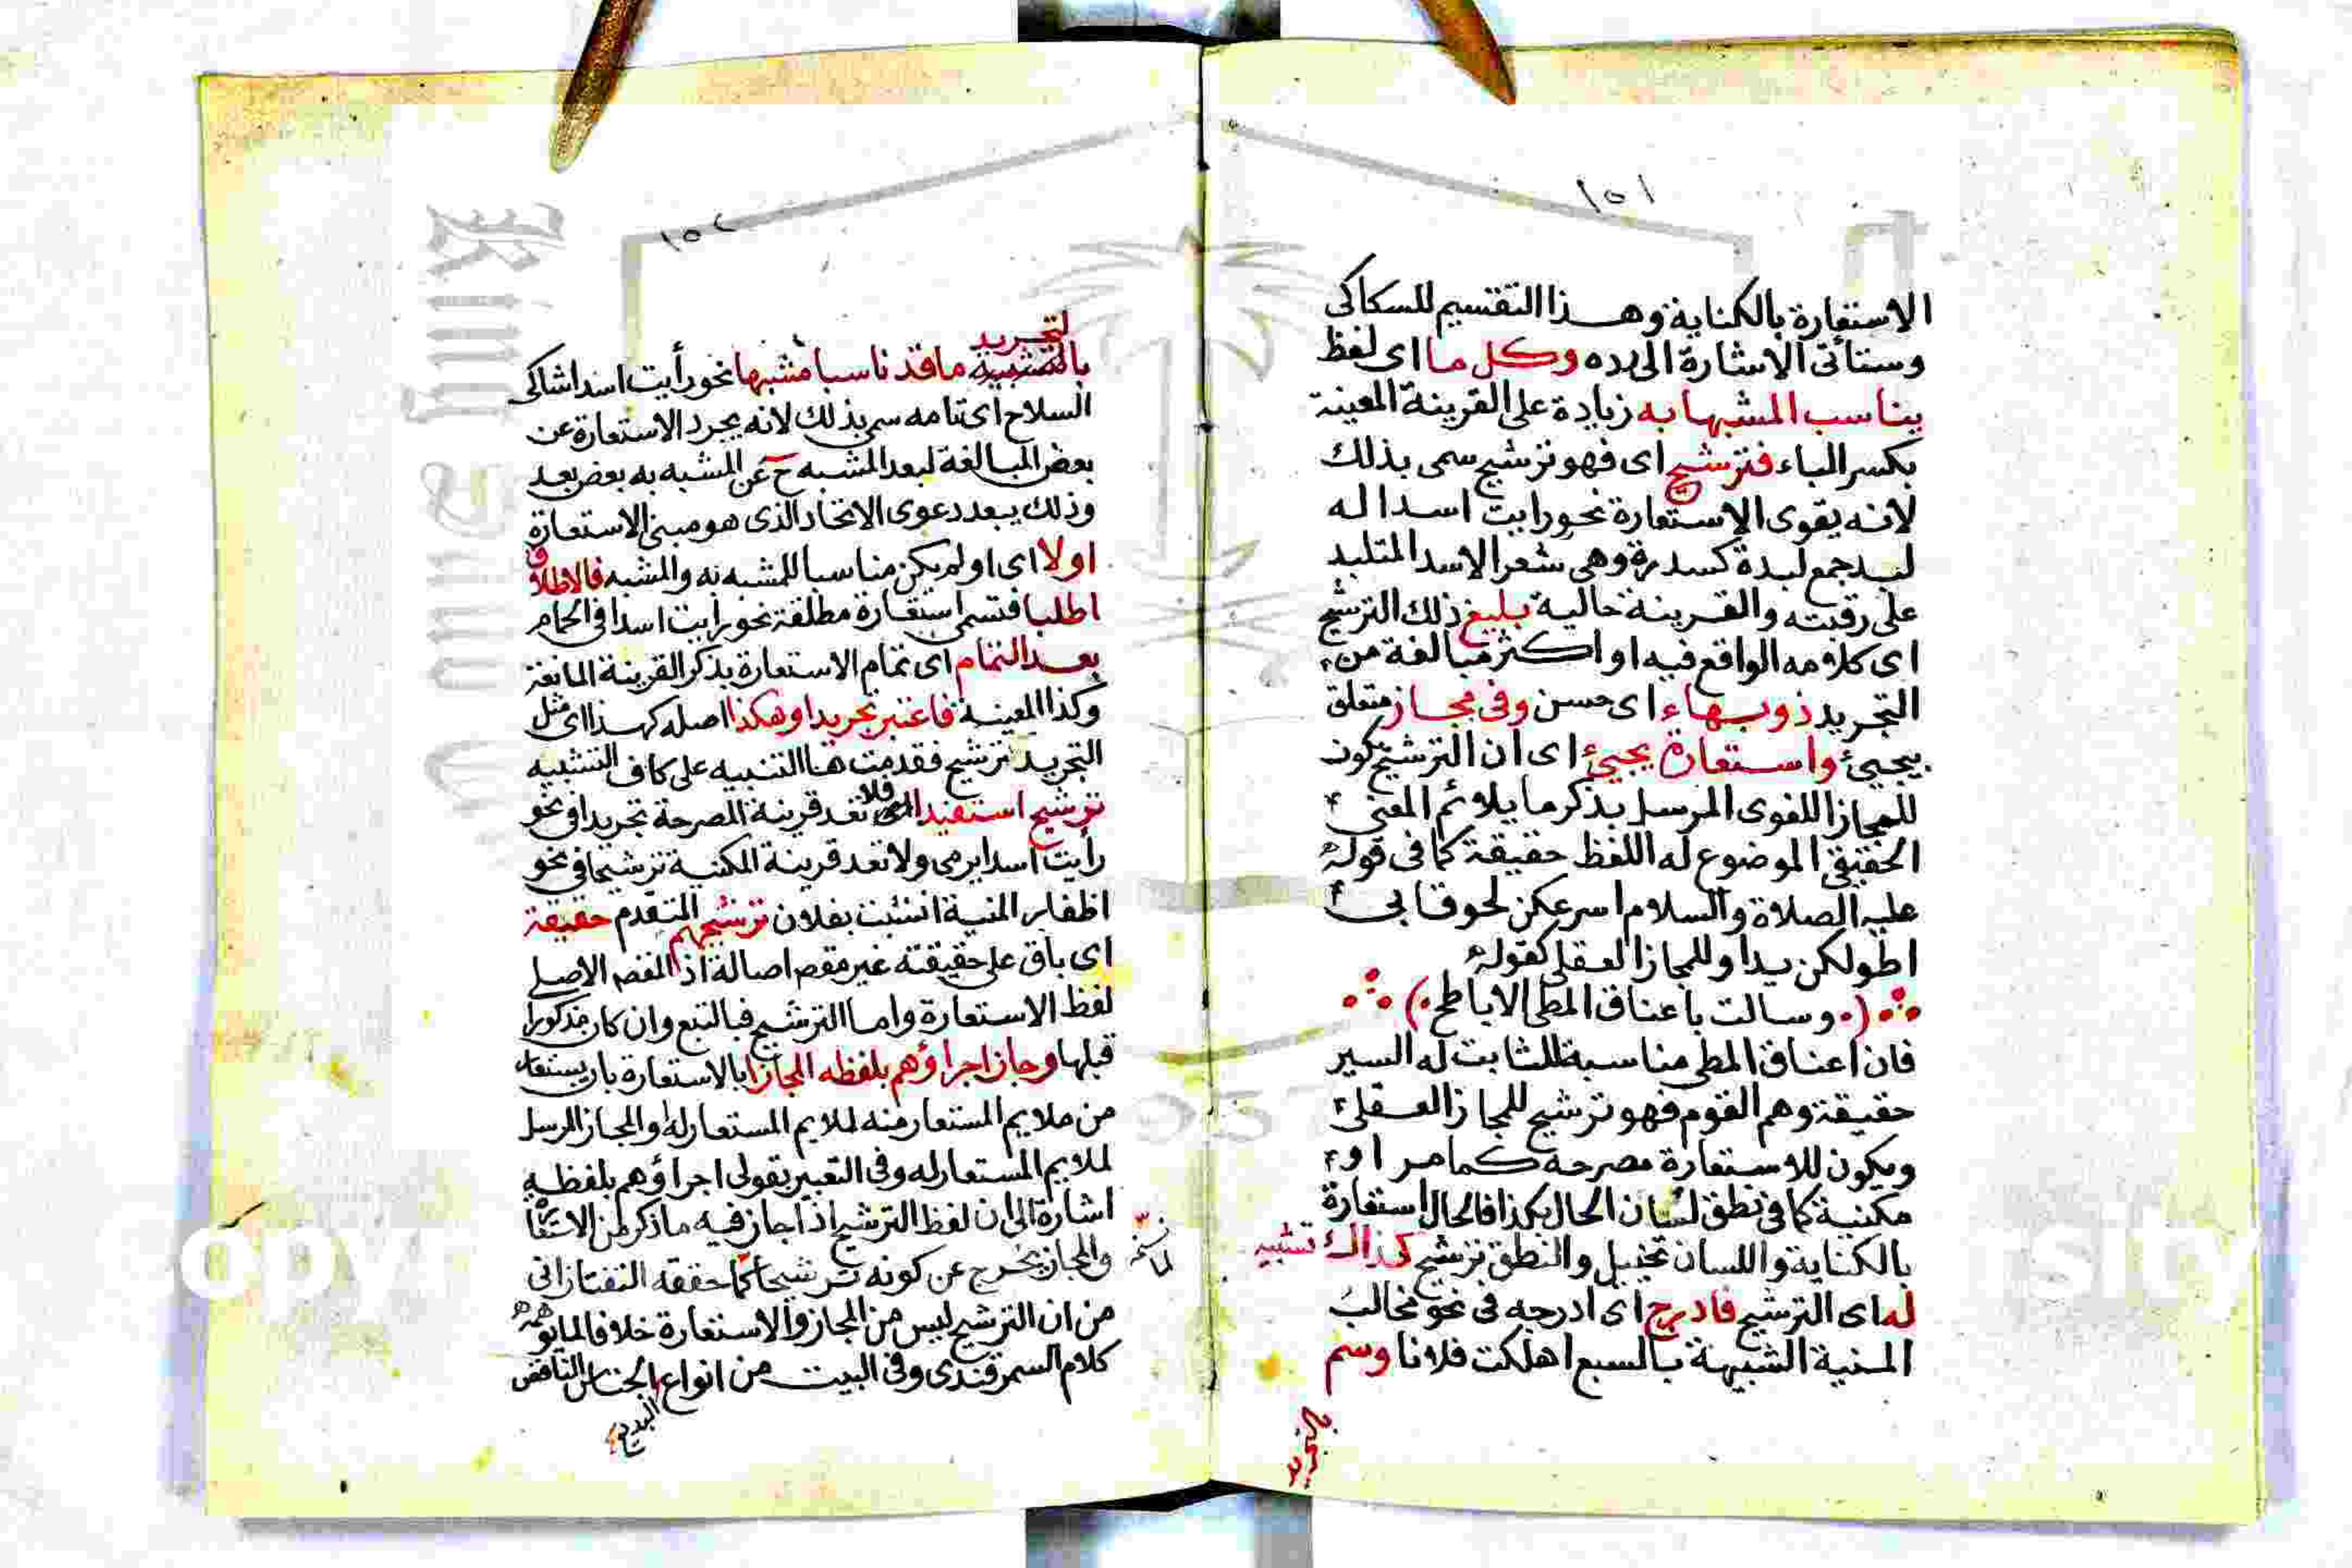 ١٥١
الاستعارة بالكناية وهذا التقسيم للسكاكى
وستأتى الاشارة الى رده وكل ما اى لفظ
يناسب المشبها به زيادة على القرينة المعينة
بكسر الياء فترشيح اى فهو ترشيح سمى بذلك
لانه يقوى الاستعارة نحو رايت اسدا له
لبد جمع لبدة كسدرة وهى شعر الاسد المتلبد
على رقبته والقرينة حالية بليغ ذلك الترشيح
اى كلامه الواقع فيه او اكثر مبالغة من
التجريد ذو بهاء اى حسن وفى مجاز متعلق
بيجيئ واستعارة يجيئ اى ان الترشيح يكون
للمجاز اللغوى المرسل بذكر ما يلائم المعنى
الحقيقى الموضوع له اللفظ حقيقة كما فى قوله
عليه الصلاة والسلام اسرعكن لحوقا بى
اطولكن يدا وللمجاز العقلى كقوله
(وسالت باعناق المطى الاباطح)
فان اعناق المطى مناسبة للثابت له السير
حقيقة وهم القوم فهو ترشيح للمجاز العقلى
ويكون للاستعارة مصرحة كما مر او
مكنية كما فى نطق لسان الحال بكذا فالحال استعارة
بالكناية واللسان تخييل والنطق ترشيح كذاك تشبيه
له اى الترشيح فادرج اى ادرجه فى نحو مخالب
المنية الشبيهة بالسبع اهلكت فلانا وسم
بالتجريد
١٥٢
لتجريد
بالتشبيه ما قد ناسبا مشبها نحو رأيت اسدا شاكى
السلاح اى تامه سمى بذلك لانه يجرد الاستعارة عن
بعض المبالغة لبعد المشبه ح عن المشبه به بعض بعد
وذلك يبعد دعوى الاتحاد الذى هو مبنى الاستعارة
اولا اى او لم يكن مناسبا للمشبه به والمشبه فالاطلاق
اطلبا فتسمى استعارة مطلقة نحو رايت اسدا فى الحمام
بعد التمام اى تمام الاستعارة بذكر القرينة المانعة
وكذا المعينة فاعتبر تجريدا وهكذا اصله كهذا اى مثل
التجريد ترشيح فقدمت هنا التنبيه على كاف التشبيه
ترشيح استفيدا فلا تعد قرينة المصرحة تجريدا فى نحو
رأيت اسدا يرمى ولا تعد قرينة المكنية ترشيحا فى نحو
اظفار المنية انشبت بفلان ترشيحهم المتقدم حقيقة
اى باق على حقيقته غير مقصم اصالة اذ المقصم الاصلى
لفظ الاستعارة واما الترشيح فبالتبع وان كان مذكورا
قبلها وجاز اجراؤهم بلفظه المجازا بالاستعارة بان يستعار
من ملايم المستعار منه لملايم المستعار له والمجاز المرسل
لملايم المستعار له وفى التعبير بقولى اجراؤهم بلفظه
اشارة الى ان لفظ الترشيح اذا جاز فيه ما ذكر من الاستعارة
والمجاز يخرج عن كونه ترشيحا كما حققه التفتازانى
من ان الترشيح ليس من المجاز والاستعارة خلافا لما يوهمه
كلام السمرقندى وفى البيت من انواع الجناس الناقص
البديع